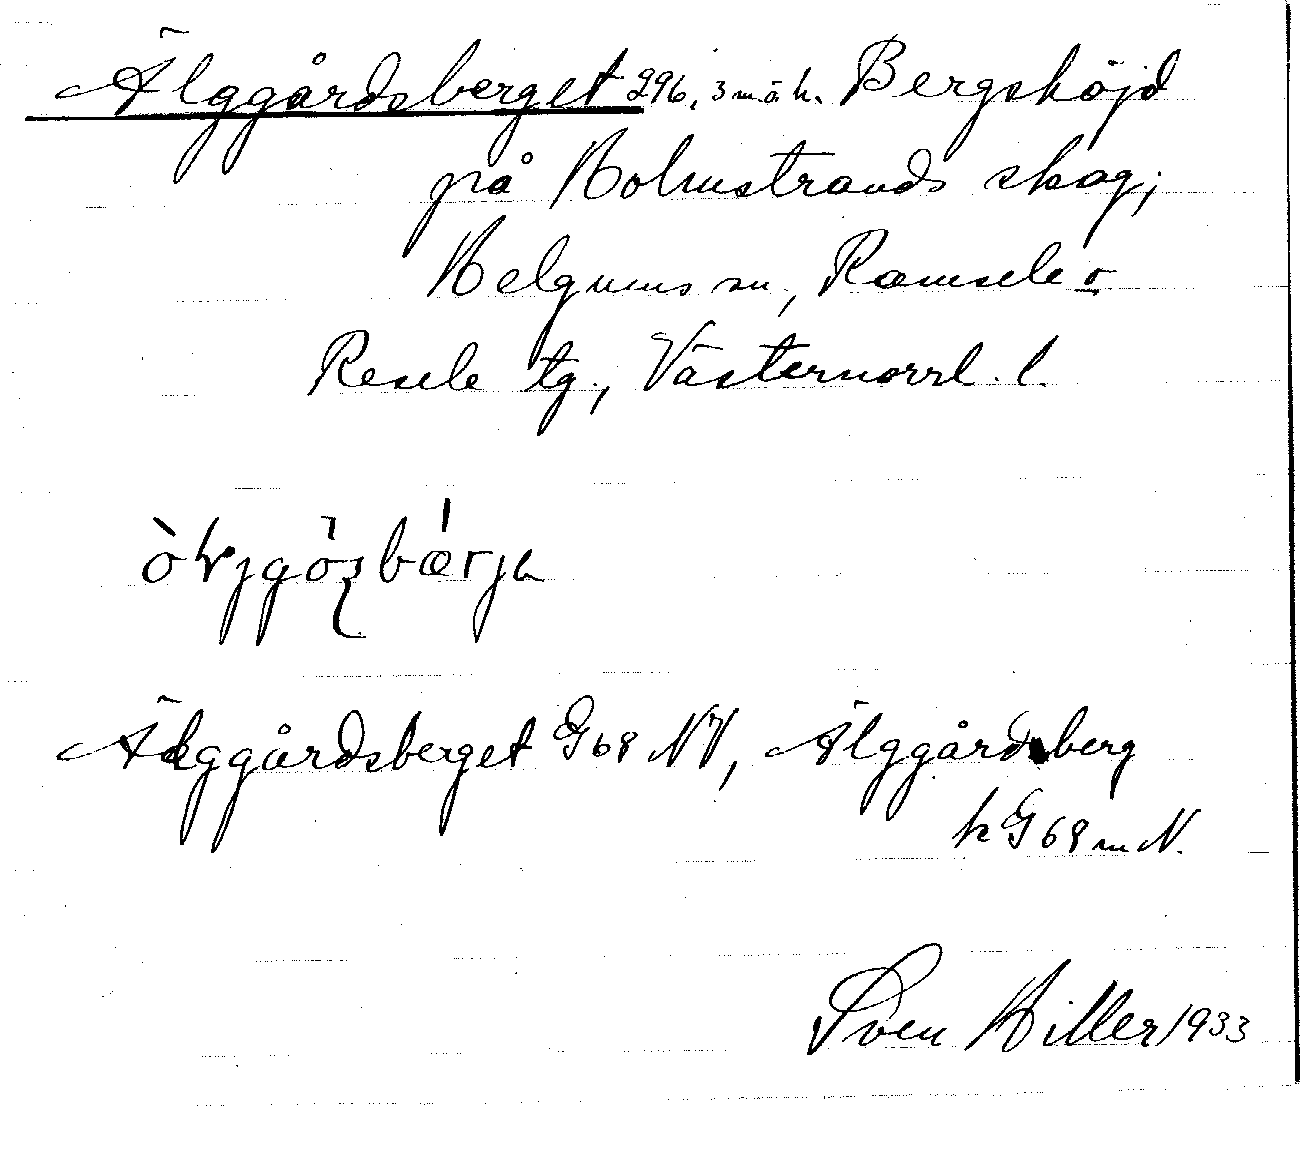 Älggårdsberget 296,3 m ö h. Bergshöjd
på Holmstrands skog,
Helgums sn, Ramsele o
Resele tg., Västernorrl. l.
Älggårdsberget G 68 NV, Älggårdsberg
k G 68 m N.
Sven Hiller 1933